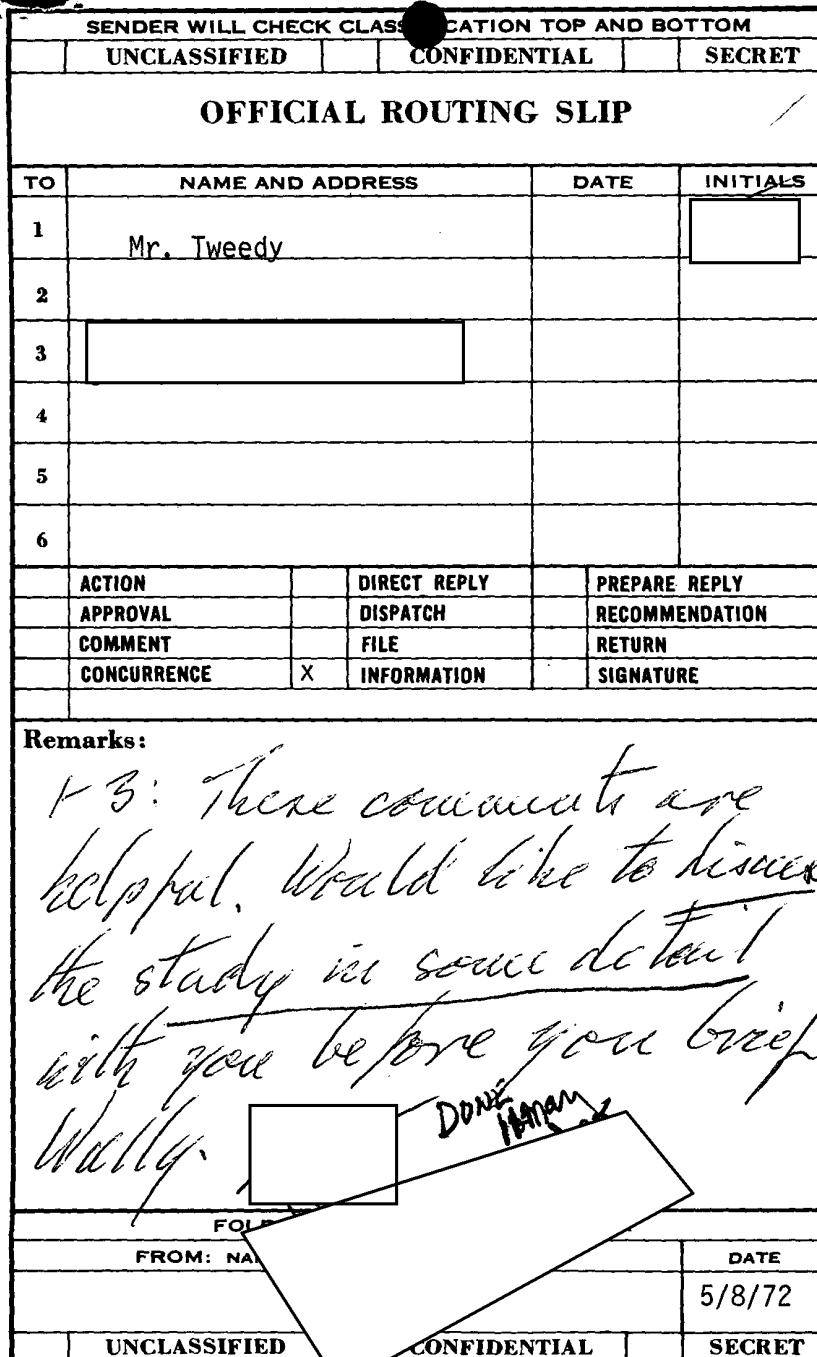 SENDER WILL CHECK CLASS CATION TOP AND BOTTOM
UNCLASSIFIED CONFIDENTIAL SECRET
OFFICIAL ROUTING SLIP
TO NAME AND ADDRESS DATE INITIALS
1 Mr. Tweedy
2
3
4
5
6
ACTION DIRECT REPLY PREPARE REPLY
APPROVAL DISPATCH RECOMMENDATION
COMMENT FILE RETURN
CONCURRENCE X INFORMATION SIGNATURE
Remarks:
3: These comments are
helpful. Would like to discuss
the study in some detail
with you before you brief
Wally.
DONE
FOL
FROM: NA DATE
5/8/72
UNCLASSIFIED CONFIDENTIAL SECRET